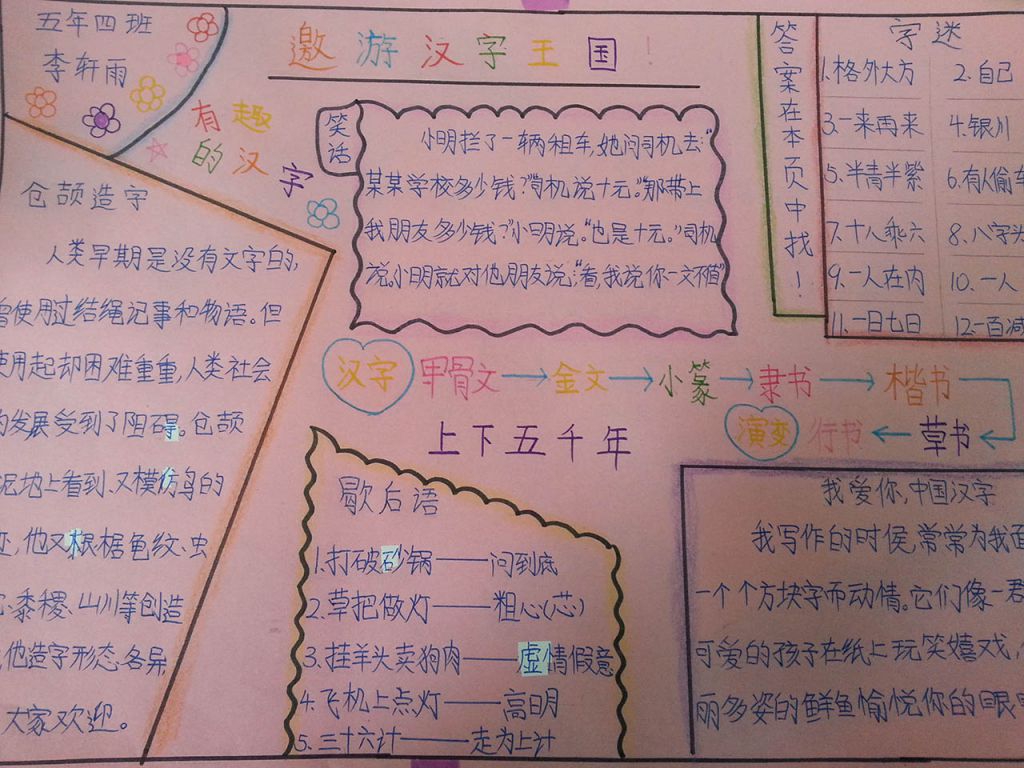 五年四班
李轩雨
邀游汉字王国！
有趣的汉字
仓颉造字
人类早期是没有文字的,
使用过结绳记事和物语。但
使用起却困难重重,人类社会
的发展受到了阻碍。仓颉
泥地上看到、又模仿鸟的
迹,他又根据龟纹、虫
黍稷、山川等创造
他造字形态各异
大家欢迎。
笑话
小明拦了一辆租车,她问司机去“
某某学校多少钱?”司机说十元。“那带上
我朋友多少钱?”小明说。“也是十元。”司机
说。小明就对他朋友说:“看,我说你一文不值”
答案在本页中找！
字迷
1.格外大方 2.自己
3.一来再来 4.银川
5.半青半紫 6.有人偷车
7.十八乘六 8.八字头
9.一人在内 10.一人
11.一日七日 12.一百减
汉字 甲骨文→金文→小篆→隶书→楷书
演变 行书←草书
上下五千年
歇后语
1.打破砂锅——问到底
2.草把做灯——粗心(芯)
3.挂羊头卖狗肉——虚情假意
4.飞机上点灯——高明
5.三十六计——走为上计
我爱你,中国汉字
我写作的时候,常常为我面
一个个方块字而动情。它们像一群
可爱的孩子在纸上玩笑嬉戏,
丽多姿的鲜鱼愉悦你的眼